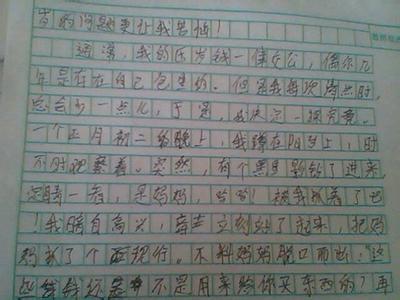 岁的问题更让我苦恼!
通常,我的压岁钱一律充公,偶尔几
年是存在自己包里的。但是我每次清点时,
总会少一点儿,于是,我决定一探究竟。
一个正月初二的晚上,我蹲在阳台上,时
不时观察着。突然,有个黑影钻了进来,
定睛一看,是妈妈,哈哈!被我抓着了吧
!我暗自高兴,立刻站了起来,把妈
妈抓了个正现行。不料妈妈脱口而出:"这
些钱还不是用来给你买东西的?再